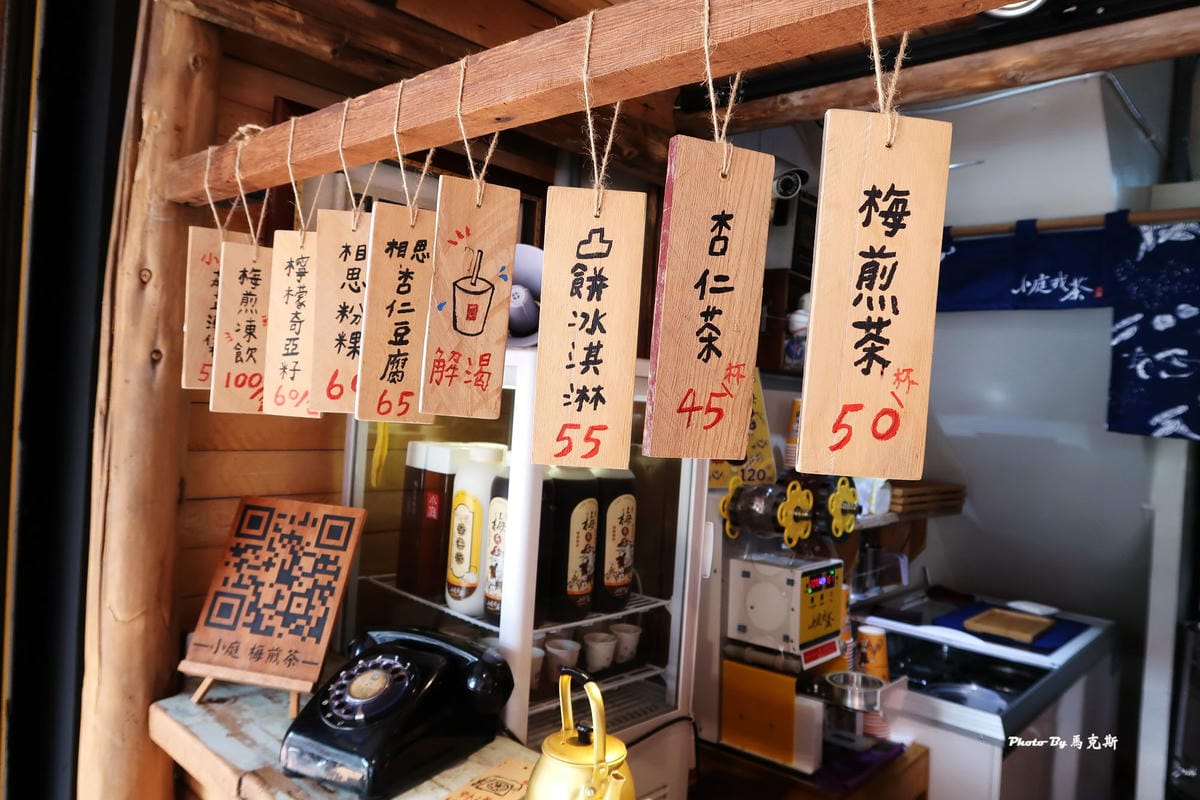 梅煎茶
50/杯
杏仁茶
45/杯
凸餅冰淇淋
55
解渴
相思杏仁豆腐
65
相思粉粿
檸檬奇亞籽
60/
梅煎凍飲
100/
小
5
小庭 梅煎茶
小庭戏茶
梅
梅
120
Photo By 馬克斯